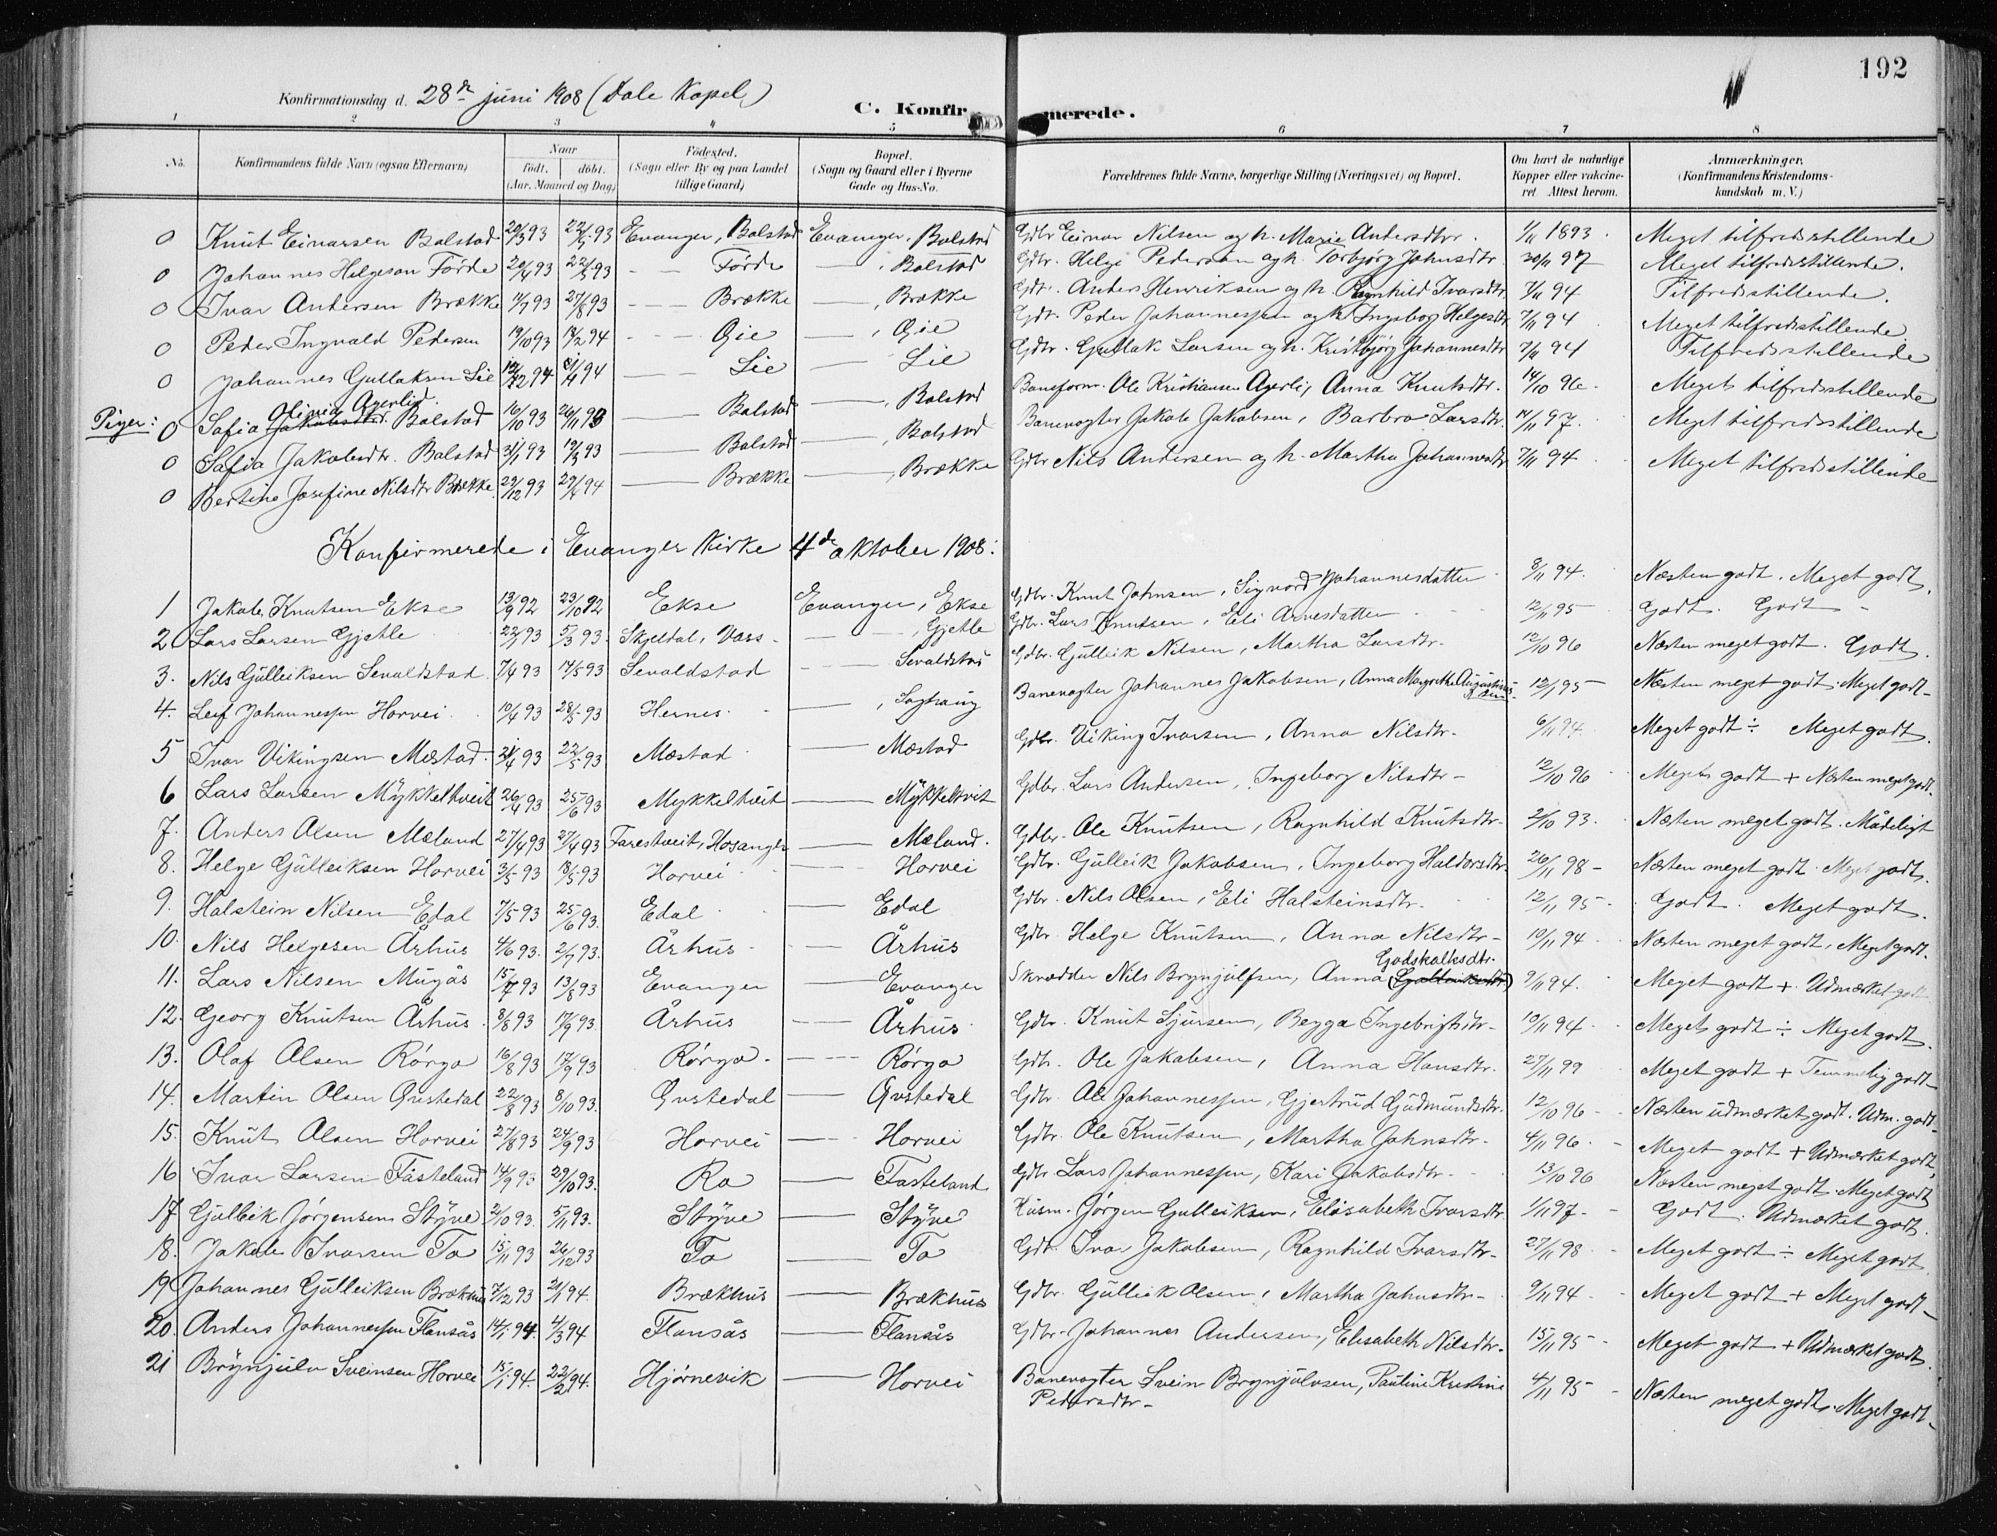 192
Konfirmationsdag d. 28de juni 1908 (Dale Kapel)
C. Konfirmerede.
1 2 3 4 5 6 7 8
No. Konfirmandens fulde Navn (ogsaa Efternavn) Naar født. døbt. (Aar, Maaned og Dag) Fødested. (Sogn eller By og paa Landet tillige Gaard) Bopæl. (Sogn og Gaard eller i Byerne Gade og Hus-No. Forældrenes fulde Navne, borgerlige Stilling (Næringsvei) og Bopæl. Om havt de naturlige Kopper eller vaccineret. Attest herom. Anmærkninger. (Konfirmandens Kristendomskundskab m. V.)
0 Knut Einarsen Bolstad 20/3 93 22/5 93 Evanger, Bolstad Evanger, Bolstad Gdbr Einar Nilsen og h. Marie Andersdtr. 1/11 1893. Meget tilfredsstillende
0 Johannes Helgeson Förde 20/4 93 22/5 93 — Förde —, Bolstad Gdbr. Helge Pederson og h. Torbjörg Johnsdtr. 20/11 97 Meget tilfredsstillende.
0 Ivar Andersen Brække 7/7 93 27/8 93 — Brække —, Brække Gdbr. Anders Henriksen og h. Ragnhild Ivarsdtr. 7/11 94 Tilfredsstillende.
0 Peder Ingvald Pedersen 19/10 93 13/2 94 — Øie —, Øie Gdbr. Peder Johannessen og h. Ingeborg Helgesdtr 7/11 94 Meget tilfredsstillende.
0 Johannes Gullaksen Lie 94 94 — Lie — Lie Gdbr. Gullak Larsen og h. Kristbjørg Johannesdtr 7/11 94 Tilfredsstillende
Piger: 0 Sofia Olivia Agerlid Jakobsdtr. Bolstad 16/10 93 26/11 93 — Bolstad —, Bolstad Baneform. Ole Kristiansen Agerli, Anna Knutsdtr. 14/10 96. Meget tilfredsstillende
0 Sofia Jakobsdtr. Bolstad 31/1 93 19/3 93 — Bolstad —, Bolstad Banevogter Jakob Jakobsen, Barbro Larsdtr. 14/11 97. Meget tilfredsstillende
0 Bertine Josefine Nilsdtr Brække 29/12 93 29/4 94 — Brække —, Brække Gdbr Nils Andersen og h. Martha Johannesdtr 7/11 94 Meget tilfredsstillende
Konfirmerede i Evanger Kirke 4de oktober 1908:
1 Jakob Knutsen Ekse 13/9 92 23/10 92 Ekse Evanger, Ekse Gdbr. Knut Johnsen, Signord Johannesdatter 8/11 94. Næsten godt. Meget godt.
2 Lars Larsen Gjetle 22/1 93 5/3 93. Skjeldal, Voss —, Gjetle Gdbr. Lars Knutsen, Eli Arnesdatter 12/11 95 Godt. Godt
3. Nils Gulleiksen Sevaldstad. 7/4 93 14/5 93 Sevaldstad —, Sevaldstad Gdbr. Gulleik Nilsen, Martha Larsdtr. 12/10 96 Næsten meget godt. Godt.
4. Leif Johannessen Horvei. 10/4 93 28/5 93 Hernes. —, Saghaug Banevogter Johannes Jakobsen, Anna Magrethe Augustinus- 12/1 95 Næsten meget godt. Meget godt
5 Ivar Vikingsen Mæstad. 21/4 93 22/5 93 Mæstad — Mæstad Gdbr. Viking Ivarsen, Anna Nilsdtr. 6/11 94. Meget godt ÷ Meget godt.
6 Lars Larsen Mykkeltveit 26/4 93 25/6 93 Mykkeltveit — Mykkeltvit Gdbr. Lars Andersen, Ingeborg Nilsdtr 12/10 96 Meget godt + Næsten meget godt.
7. Anders Olsen Mæland 27/4 93 27/4 93 Farestveit, Hosanger — Mæland. Gdbr. Ole Knutsen, Ragnhild Knutsdtr 2/10 93. Næsten meget godt. Mådeligt
8. Helge Gulleiksen Horvei 3/5 93 93 Horvei — Horvei Gdbr. Gulleik Jakobsen, Ingeborg Haldorsdtr. 26/11 98 Næsten meget godt. Meget godt.
9. Halstein Nilsen Edal 7/5 93 25/6 93. Edal — Edal Gdbr. Nils Olsen, Eli Halsteinsdtr. 12/11 95 Godt. Meget godt.
10. Nils Helgesen Århus 4/6 93. 2/7 93. Århus — Århus Gdbr. Helge Knutsen, Anna Nilsdtr 10/11 94 Næsten meget godt. Meget godt.
11. Lars Nilsen Mugås 15/7 93 13/8 93 Evanger — Evanger Skrædder Nils Brynjulfsen, Anna Godskalksdtr. 9/11 94. Meget godt + Udmærket godt
12. Georg Knutsen Århus. 8/8 93 17/9 93. Århus — Århus Gdbr. Knut Sjursen, Begga Ingebrigtsdtr 10/11 94 Meget godt ÷ Meget godt.
13. Olaf Olsen Rørgo 16/8 93 17/9 93 Rørgo. — Rørgo Gdbr. Ole Jakobsen, Anna Hansdtr. 27/11 99 Meget godt + Temmelig godt
14. Martin Olsen Qvstedal 22/8 93 8/10 93. Qvstedal — Qvstedal Gdbr. Ole Johannessen, Gjertrud Gudmundsdtr. 12/10 96 Næsten udmærket godt. Udm. godt
15. Knut Olsen Horvei 27/8 93 24/9 93 Horvei — Horvei Gdbr. Ole Knutsen, Martha Johnsdtr. 4/11 96. Meget godt + Udmærket godt.
16 Ivar Larsen Fasteland 14/9 93 29/10 93. Ro — Fasteland Gdbr Lars Johannessen, Kari Jakobsdtr. 13/10 96 Næsten meget godt. Meget godt
17 Gulleik Jørgensen Styve 2/10 93. 5/11 93. Styve — Styve Husm. Jørgen Gulleiksen, Elisabeth Ivarsdtr. 1/11 97. Godt. Udmærket godt.
18. Jakob Ivarsen Fo 15/11 93 26/12 93 Fo — Fo Gdbr. Ivar Jakobsen, Ragnhild Ivarsdtr. 27/11 98 Meget godt ÷ Meget godt
19 Johannes Gulleiksen Brækhus 7/12 93 21/1 94. Brækhus — Brækhus Gdbr. Gulleik Olsen, Martha Johnsdtr. 9/11 94 Meget godt + Meget godt
20. Anders Johannessen Flansås 14/1 94. 4/3 94 Flansås — Flansås Gdbr. Johannes Andersen, Elisabeth Nilsdtr. 15/11 95 Meget godt + Udmærket godt.
21 Brynjulv Sveinsen Horvei 15/1 94. 22/2 94. Hjørnevik — Horvei Banevogter Svein Brynjulvsen, Pauline Kristine Pedersdtr. 4/11 95 Næsten meget godt. Meget godt